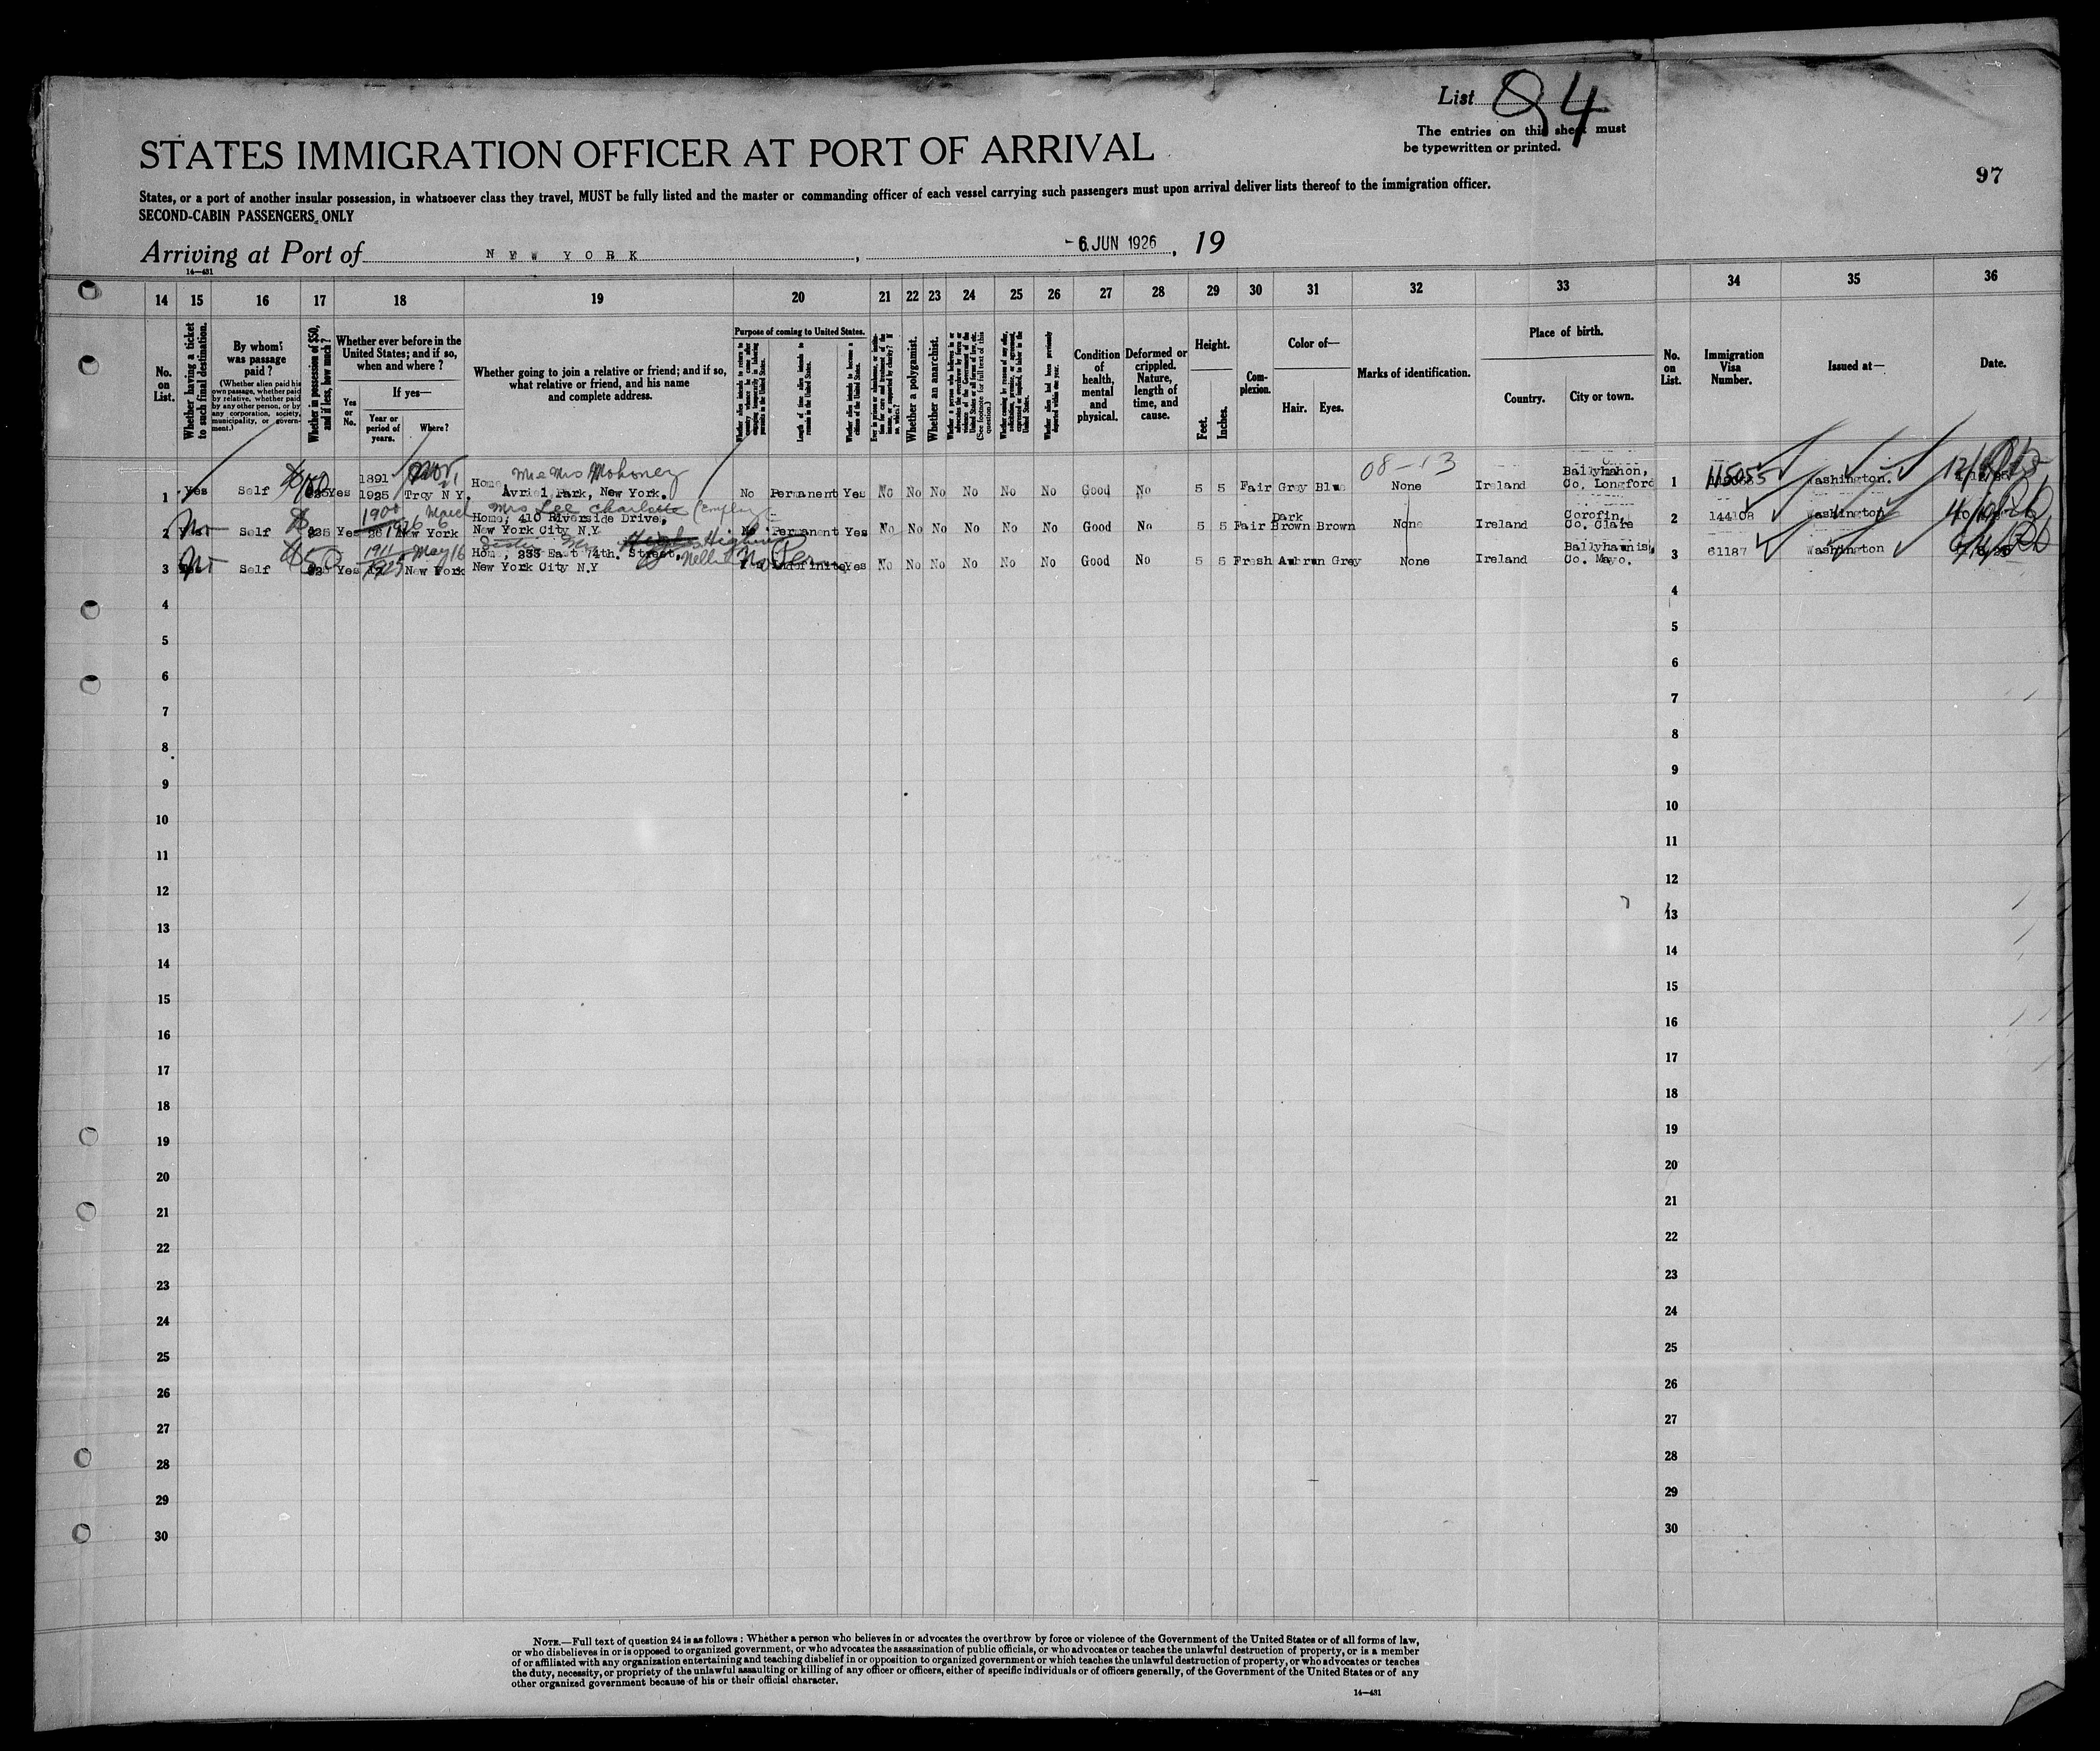 List 84
The entries on this sheet must
be typewritten or printed.
STATES IMMIGRATION OFFICER AT PORT OF ARRIVAL
97
States, or a port of another insular possession, in whatsoever class they travel, MUST be fully listed and the master or commanding officer of each vessel carrying such passengers must upon arrival deliver lists thereof to the immigration officer.
SECOND-CABIN PASSENGERS ONLY
Arriving at Port of NEW YORK, -6 JUN 1926, 19
14—431
14 15 16 17 18 19 20 21 22 23 24 25 26 27 28 29 30 31 32 33 34 35 36
No. on List.
Whether having a ticket to such final destination.
By whom was passage paid?
(Whether alien paid his own passage, whether paid by relative, whether paid by any other person, or by any corporation, society, municipality, or government.)
Whether in possession of $50, and if less, how much?
Whether ever before in the United States; and if so, when and where?
If yes—
Yes or No.
Year or period of years.
Where?
Whether going to join a relative or friend; and if so, what relative or friend, and his name and complete address.
Purpose of coming to United States.
Length of time alien intends to remain in the United States.
Whether alien intends to become a citizen of the United States.
Whether a polygamist.
Whether an anarchist.
Condition of health, mental and physical.
Deformed or crippled. Nature, length of time, and cause.
Height.
Feet. Inches.
Complexion.
Color of—
Hair. Eyes.
Marks of identification.
Place of birth.
Country. City or town.
No. on List.
Immigration Visa Number.
Issued at—
Date.
Mrs Mahoney 08-13
1891 Nov. Home Ballymahon,
1 Yes Self Yes 1925 Troy N.Y. Avril Park, New York. No Permanent Yes No No No No No No Good No 5 5 Fair Grey Blue None Ireland Co. Longford 1 115055 Washington.
1900 March Mrs Lee Charlotte
Home, 410 Riverside Drive, Dark Corofin,
2 No Self $25 Yes 26 New York New York City N.Y. No Permanent Yes No No No No No No Good No 5 5 Fair Brown Brown None Ireland Co. Clare 2 144108 Washington
1911 May 16 Sister Mrs Higgins Nellie
Home, 233 East 74th. Street, Ballyhaunis,
3 No Self $50 Yes 1925 New York New York City N.Y No Indefinite Yes No No No No No No Good No 5 5 Fresh Auburn Grey None Ireland Co. Mayo. 3 61187 Washington
4 4
5 5
6 6
7 7
8 8
9 9
10 10
11 11
12 12
13 13
14 14
15 15
16 16
17 17
18 18
19 19
20 20
21 21
22 22
23 23
24 24
25 25
26 26
27 27
28 28
29 29
30 30
NOTE.—Full text of question 24 is as follows: Whether a person who believes in or advocates the overthrow by force or violence of the Government of the United States or of all forms of law,
or who disbelieves in or is opposed to organized government, or who advocates the assassination of public officials, or who advocates or teaches the unlawful destruction of property, or is a member
of or affiliated with any organization entertaining and teaching disbelief in or opposition to organized government or which teaches the unlawful destruction of property, or who advocates or teaches
the duty, necessity, or propriety of the unlawful assaulting or killing of any officer or officers, either of specific individuals or of officers generally, of the Government of the United States or of any
other organized government because of his or their official character.
14—431